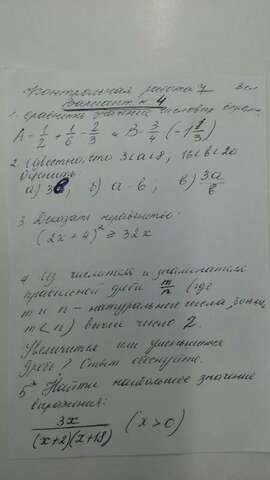 Контрольная работа 7 8кл
Вариант №4
1. Сравнить значение числовых выраж.
A = 1/2 + 1/6 - 2/3 и B = 3/4 · (-1 1/3)
2. Известно, что 3<a<8, 16<b<20
Оценить
а) 3b, б) a - b; в) 3a/b
3. Доказать неравенство:
(2x + 4)² ≥ 32x
4. Из числителя и знаменателя
правильной дроби m/n (где
m и n - натуральные числа,
m < n) вычли число 2.
Увеличится или уменьшится
дробь? Ответ обоснуйте.
5* Найти наибольшее значение
выражения:
3x/((x+2)(x+18)) (x > 0)